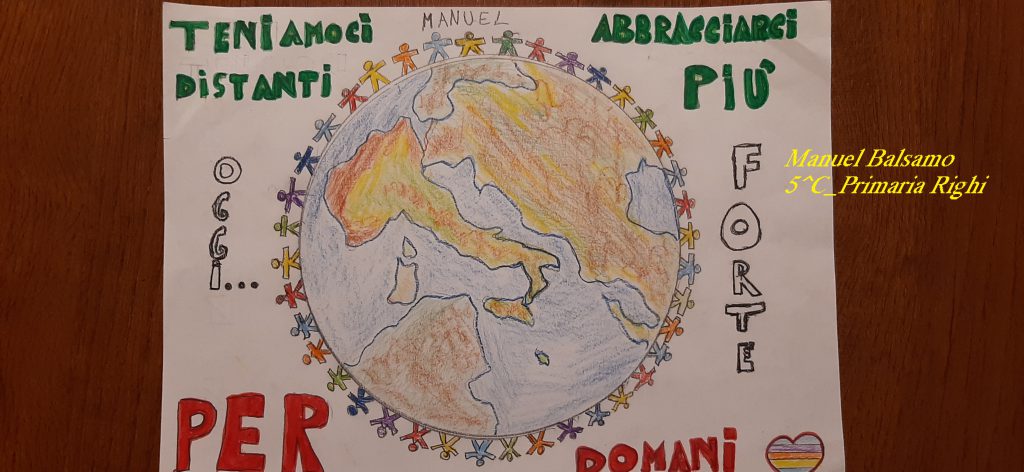 TENIAMOCI
DISTANTI
OGGI...
PER
MANUEL
ABBRACCIARCI
PIÙ
FORTE
DOMANI
Manuel Balsamo
5^C_Primaria Righi